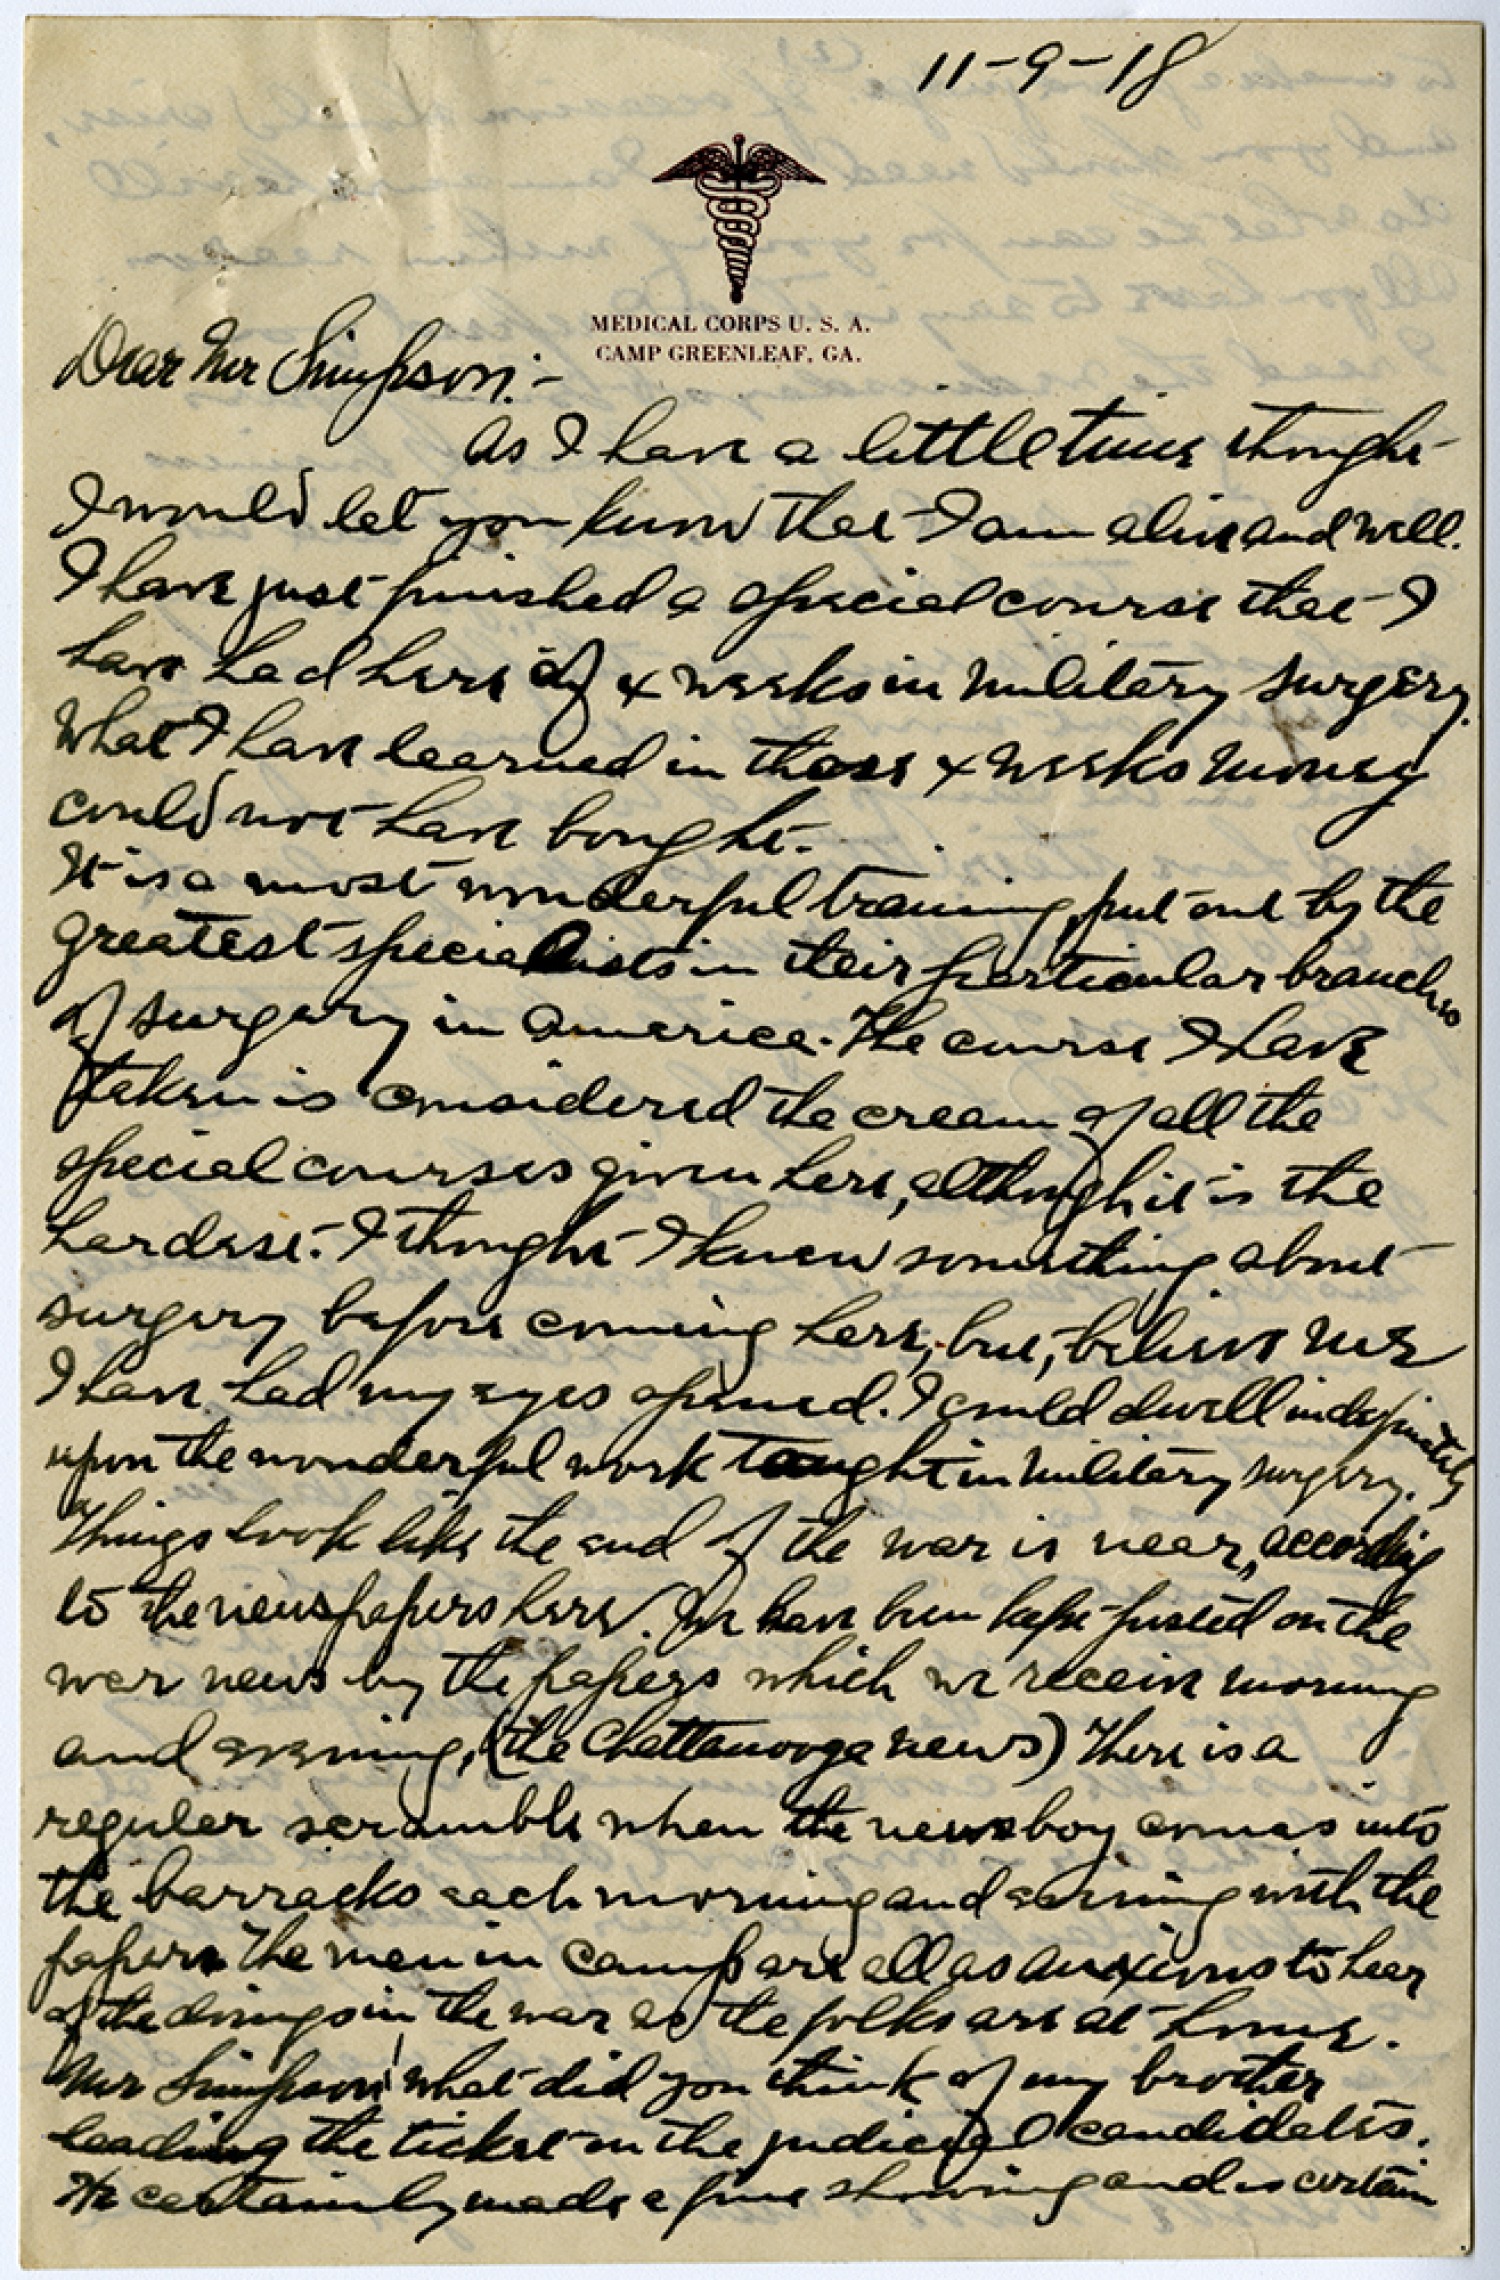 11-9-18
MEDICAL CORPS U. S. A.
CAMP GREENLEAF, GA.
Dear Mr Simpson:-
As I have a little time thought
I would let you know that I am alive and well.
I have just finished a special course that I
have had here of 4 weeks in military surgery.
What I have learned in those 4 weeks money
could not have bought.
It is a most wonderful training, put out by the
greatest specialists in their particular branches
of surgery in America. The course I have
taken is considered the cream of all the
special courses given here, although it is the
hardest. I thought I knew something about
surgery before coming here, but, believe me
I have had my eyes opened. I could dwell indefinitely
upon the wonderful work taught in military surgery.
Things look like the end of the war is near, according
to the newspapers here. We have been kept posted on the
war news by the papers which we receive morning
and evening, (the Chattanooga news) There is a
regular scramble when the newsboy comes into
the barracks each morning and evening with the
papers The men in camp are all as anxious to hear
of the doings in the war as the folks are at home.
Mr Simpson! What did you think of my brother
leading the ticket on the judicial candidates.
He certainly made a fine showing and is certain